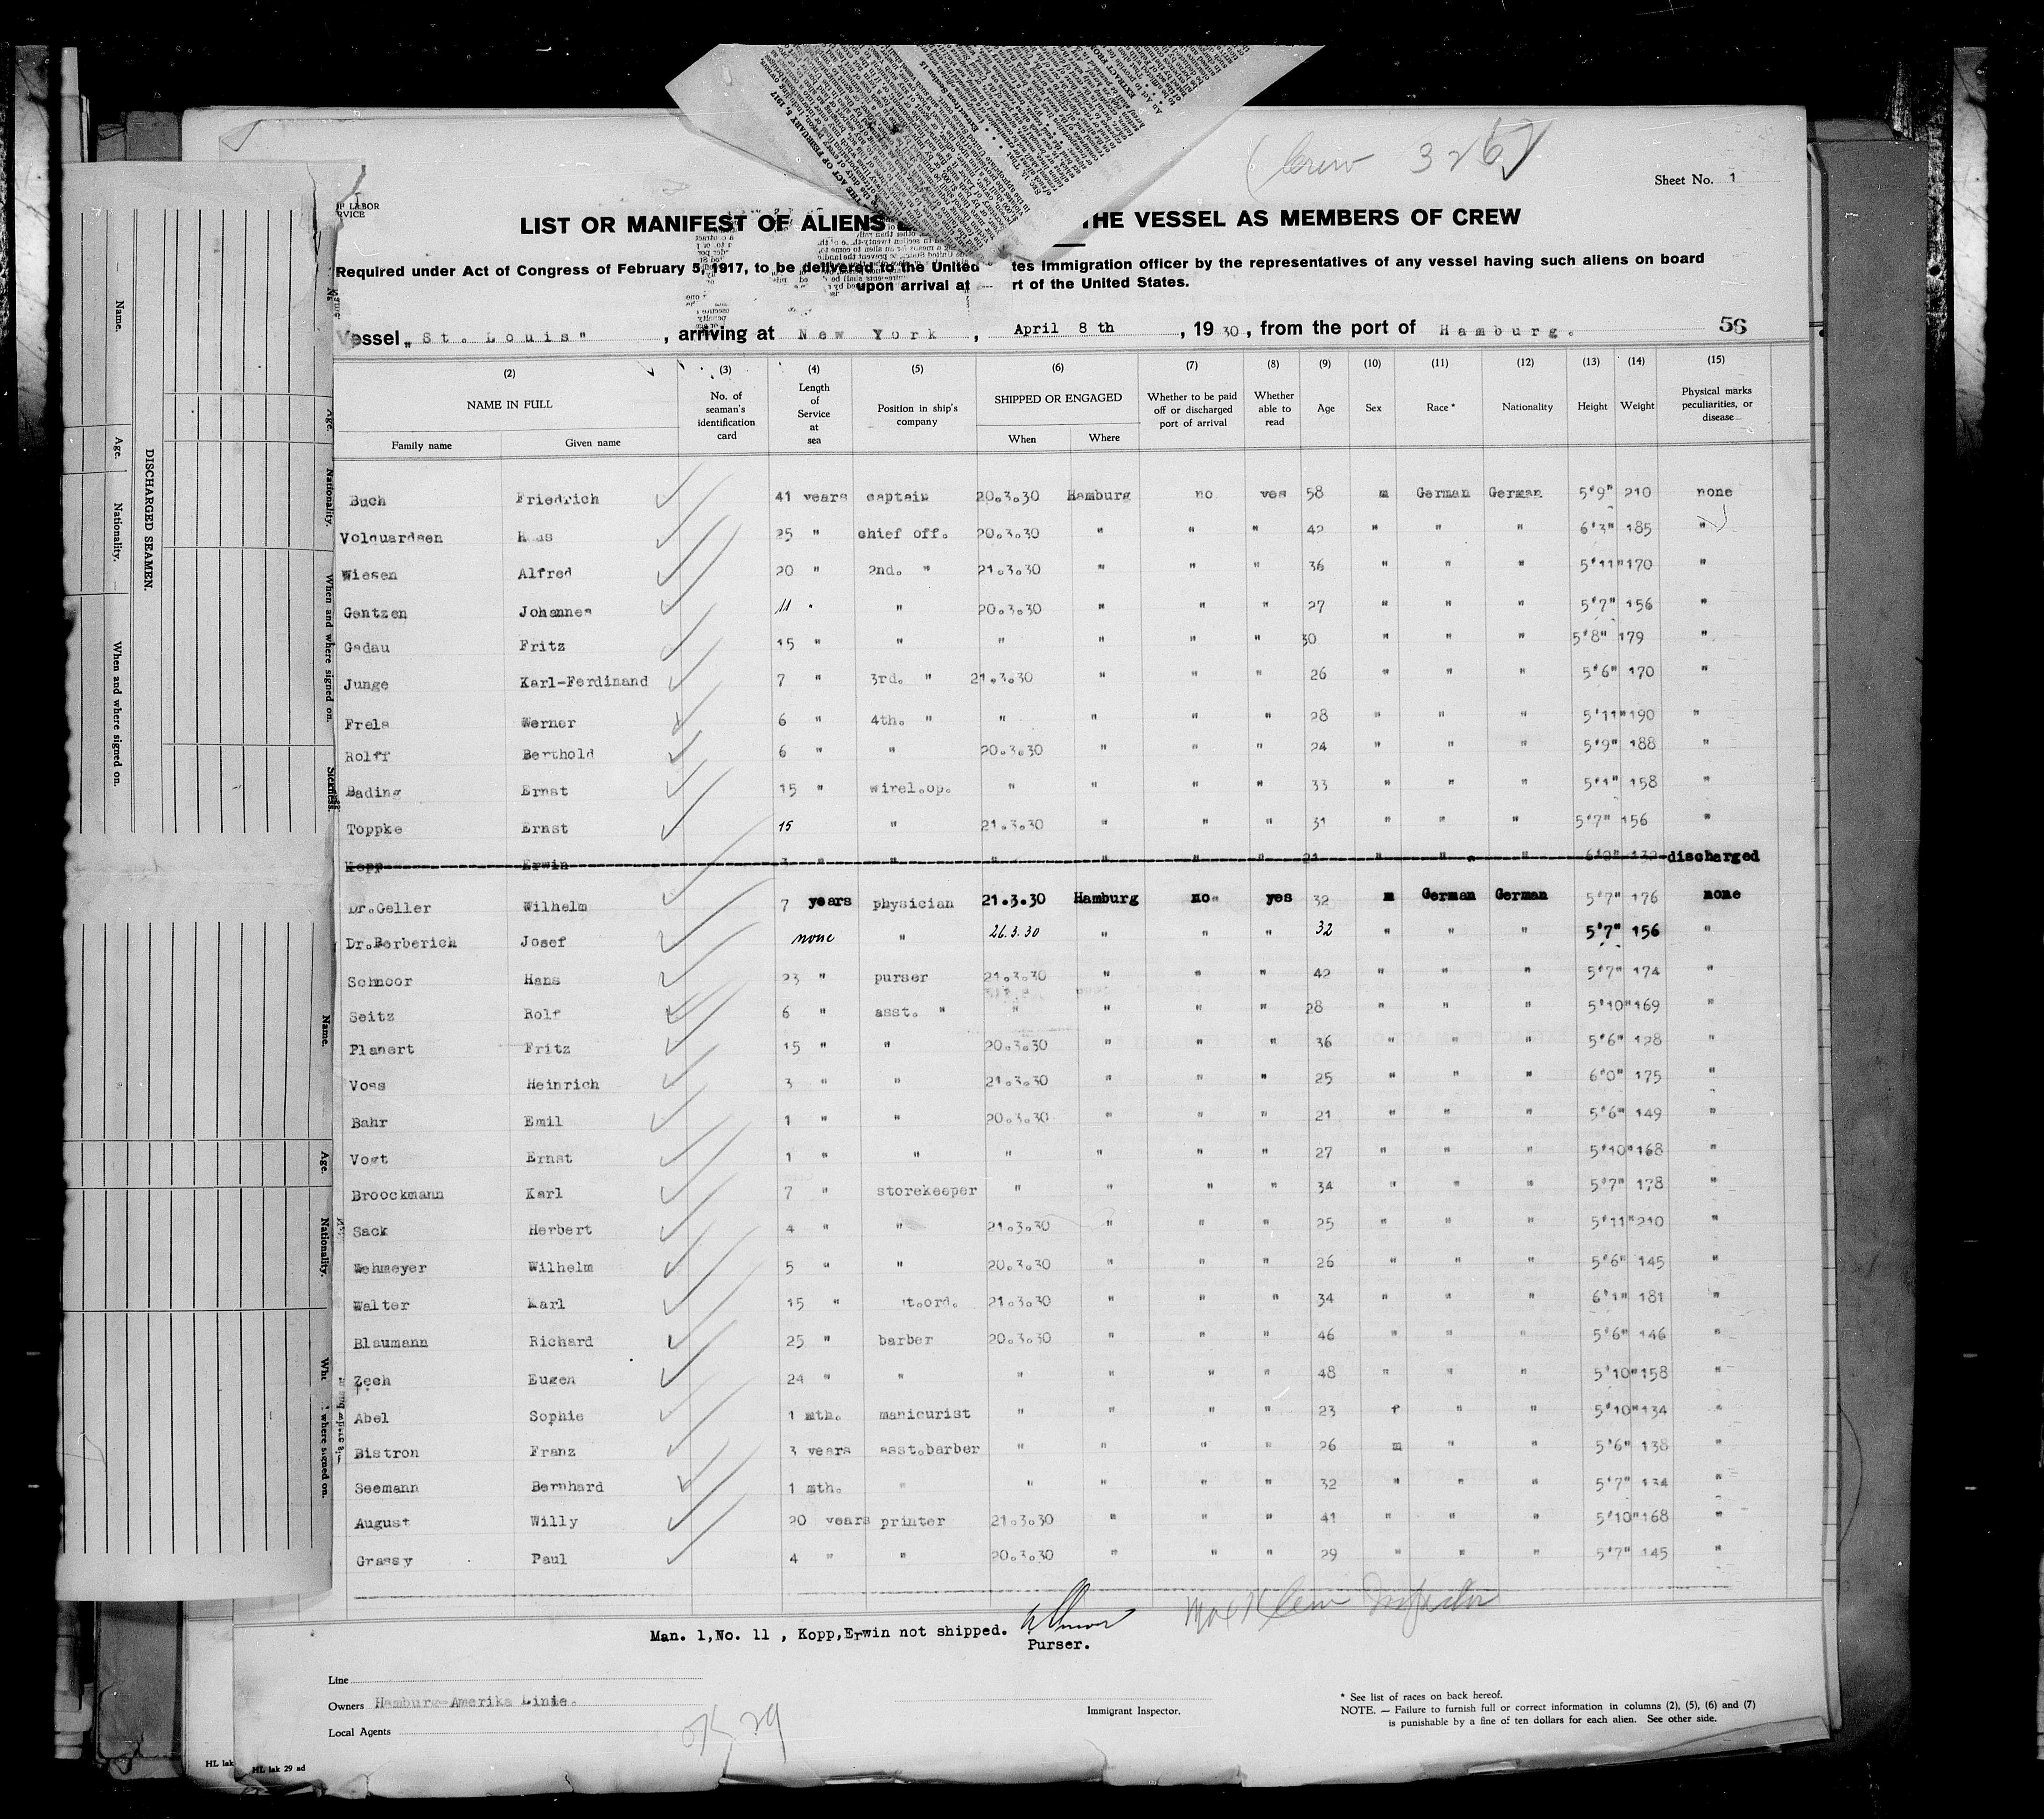 Crew 326
Sheet No. 1
OF LABOR
RVICE
LIST OR MANIFEST OF ALIENS THE VESSEL AS MEMBERS OF CREW
Required under Act of Congress of February 5, 1917, to be delivered to the United tes immigration officer by the representatives of any vessel having such aliens on board
upon arrival at rt of the United States.
Vessel „St. Louis", arriving at New York, April 8 th, 1930, from the port of Hamburg. 56
(2) (3) (4) (5) (6) (7) (8) (9) (10) (11) (12) (13) (14) (15)
NAME IN FULL No. of seaman's identification card Length of Service at sea Position in ship's company SHIPPED OR ENGAGED Whether to be paid off or discharged port of arrival Whether able to read Age Sex Race* Nationality Height Weight Physical marks peculiarities, or disease
Family name Given name When Where
Buch Friedrich 41 years captain 20.3.30 Hamburg no yes 58 m German German 5'9" 210 none
Volquardsen 25 " chief off. 20.3.30 " " " 42 " " " 6'3" 185 "
Wiesen Alfred 20 " 2nd. " 21.3.30 " " " 36 " " " 5'11" 170 "
Gentzen Johannes 11 " " 20.3.30 " " " 27 " " " 5'7" 156 "
Gadau Fritz 15 " " " " " " 30 " " " 5'8" 179 "
Junge Karl-Ferdinand 7 " 3rd. " 21.3.30 " " " 26 " " " 5'6" 170 "
Frels Werner 6 " 4th. " " " " " 28 " " " 5'11" 190 "
Rolff Berthold 6 " " 20.3.30 " " " 24 " " " 5'9" 188 "
Bading Ernst 15 " wirel.op. " " " " 33 " " " 5'1" 158 "
Toppke Ernst 15 " 21.3.30 " " " 31 " " " 5'7" 156 "
Kopp Erwin " " " " " " 21 " " " discharged
Dr.Geller Wilhelm 7 years physician 21.3.30 Hamburg no yes 32 m German German 5'7" 176 none
Dr.Berberich Josef none " 26.3.30 " " " 32 " " " 5'7" 156 "
Schnoor Hans 23 " purser 21.3.30 " " " 42 " " " 5'7" 174 "
Seitz Rolf 6 " asst. " " " " " 28 " " " 5'10" 169 "
Planert Fritz 15 " " 20.3.30 " " " 36 " " " 5'6" 128 "
Voss Heinrich 3 " " 21.3.30 " " " 25 " " " 6'0" 175 "
Bahr Emil 1 " " 20.3.30 " " " 21 " " " 5'6" 149 "
Vogt Ernst 1 " " " " " " 27 " " " 5'10" 168 "
Broockmann Karl 7 " storekeeper " " " " 34 " " " 5'7" 178 "
Sack Herbert 4 " " 21.3.30 " " " 25 " " " 5'11" 210 "
Wehmeyer Wilhelm 5 " " 20.3.30 " " " 26 " " " 5'6" 145 "
Walter Karl 15 " t.ord. 21.3.30 " " " 34 " " " 6'1" 181 "
Blaumann Richard 25 " barber 20.3.30 " " " 46 " " " 5'6" 146 "
Zech Eugen 24 " " " " " " 48 " " " 5'10" 158 "
Abel Sophie 1 mth. manicurist " " " " 23 f " " 5'10" 134 "
Bistron Franz 3 years asst.barber " " " " 26 m " " 5'6" 138 "
Seemann Bernhard 1 mth. " " " " " 32 " " " 5'7" 134 "
August Willy 20 years printer 21.3.30 " " " 41 " " " 5'10" 168 "
Grassy Paul 4 " " 20.3.30 " " " 29 " " " 5'7" 145 "
Man. 1,No. 11 , Kopp,Erwin not shipped.
Purser.
Max Klein Inspector
Line
Owners Hamburg-Amerika Linie.
Local Agents
Immigrant Inspector.
* See list of races on back hereof.
NOTE. — Failure to furnish full or correct information in columns (2), (5), (6) and (7)
is punishable by a fine of ten dollars for each alien. See other side.
HL lak
HL lak 29 ad
DISCHARGED SEAMEN.
Name.
Age.
Nationality.
When and where signed on.
Name.
Age.
Nationality.
When and where signed on.
Sickness.